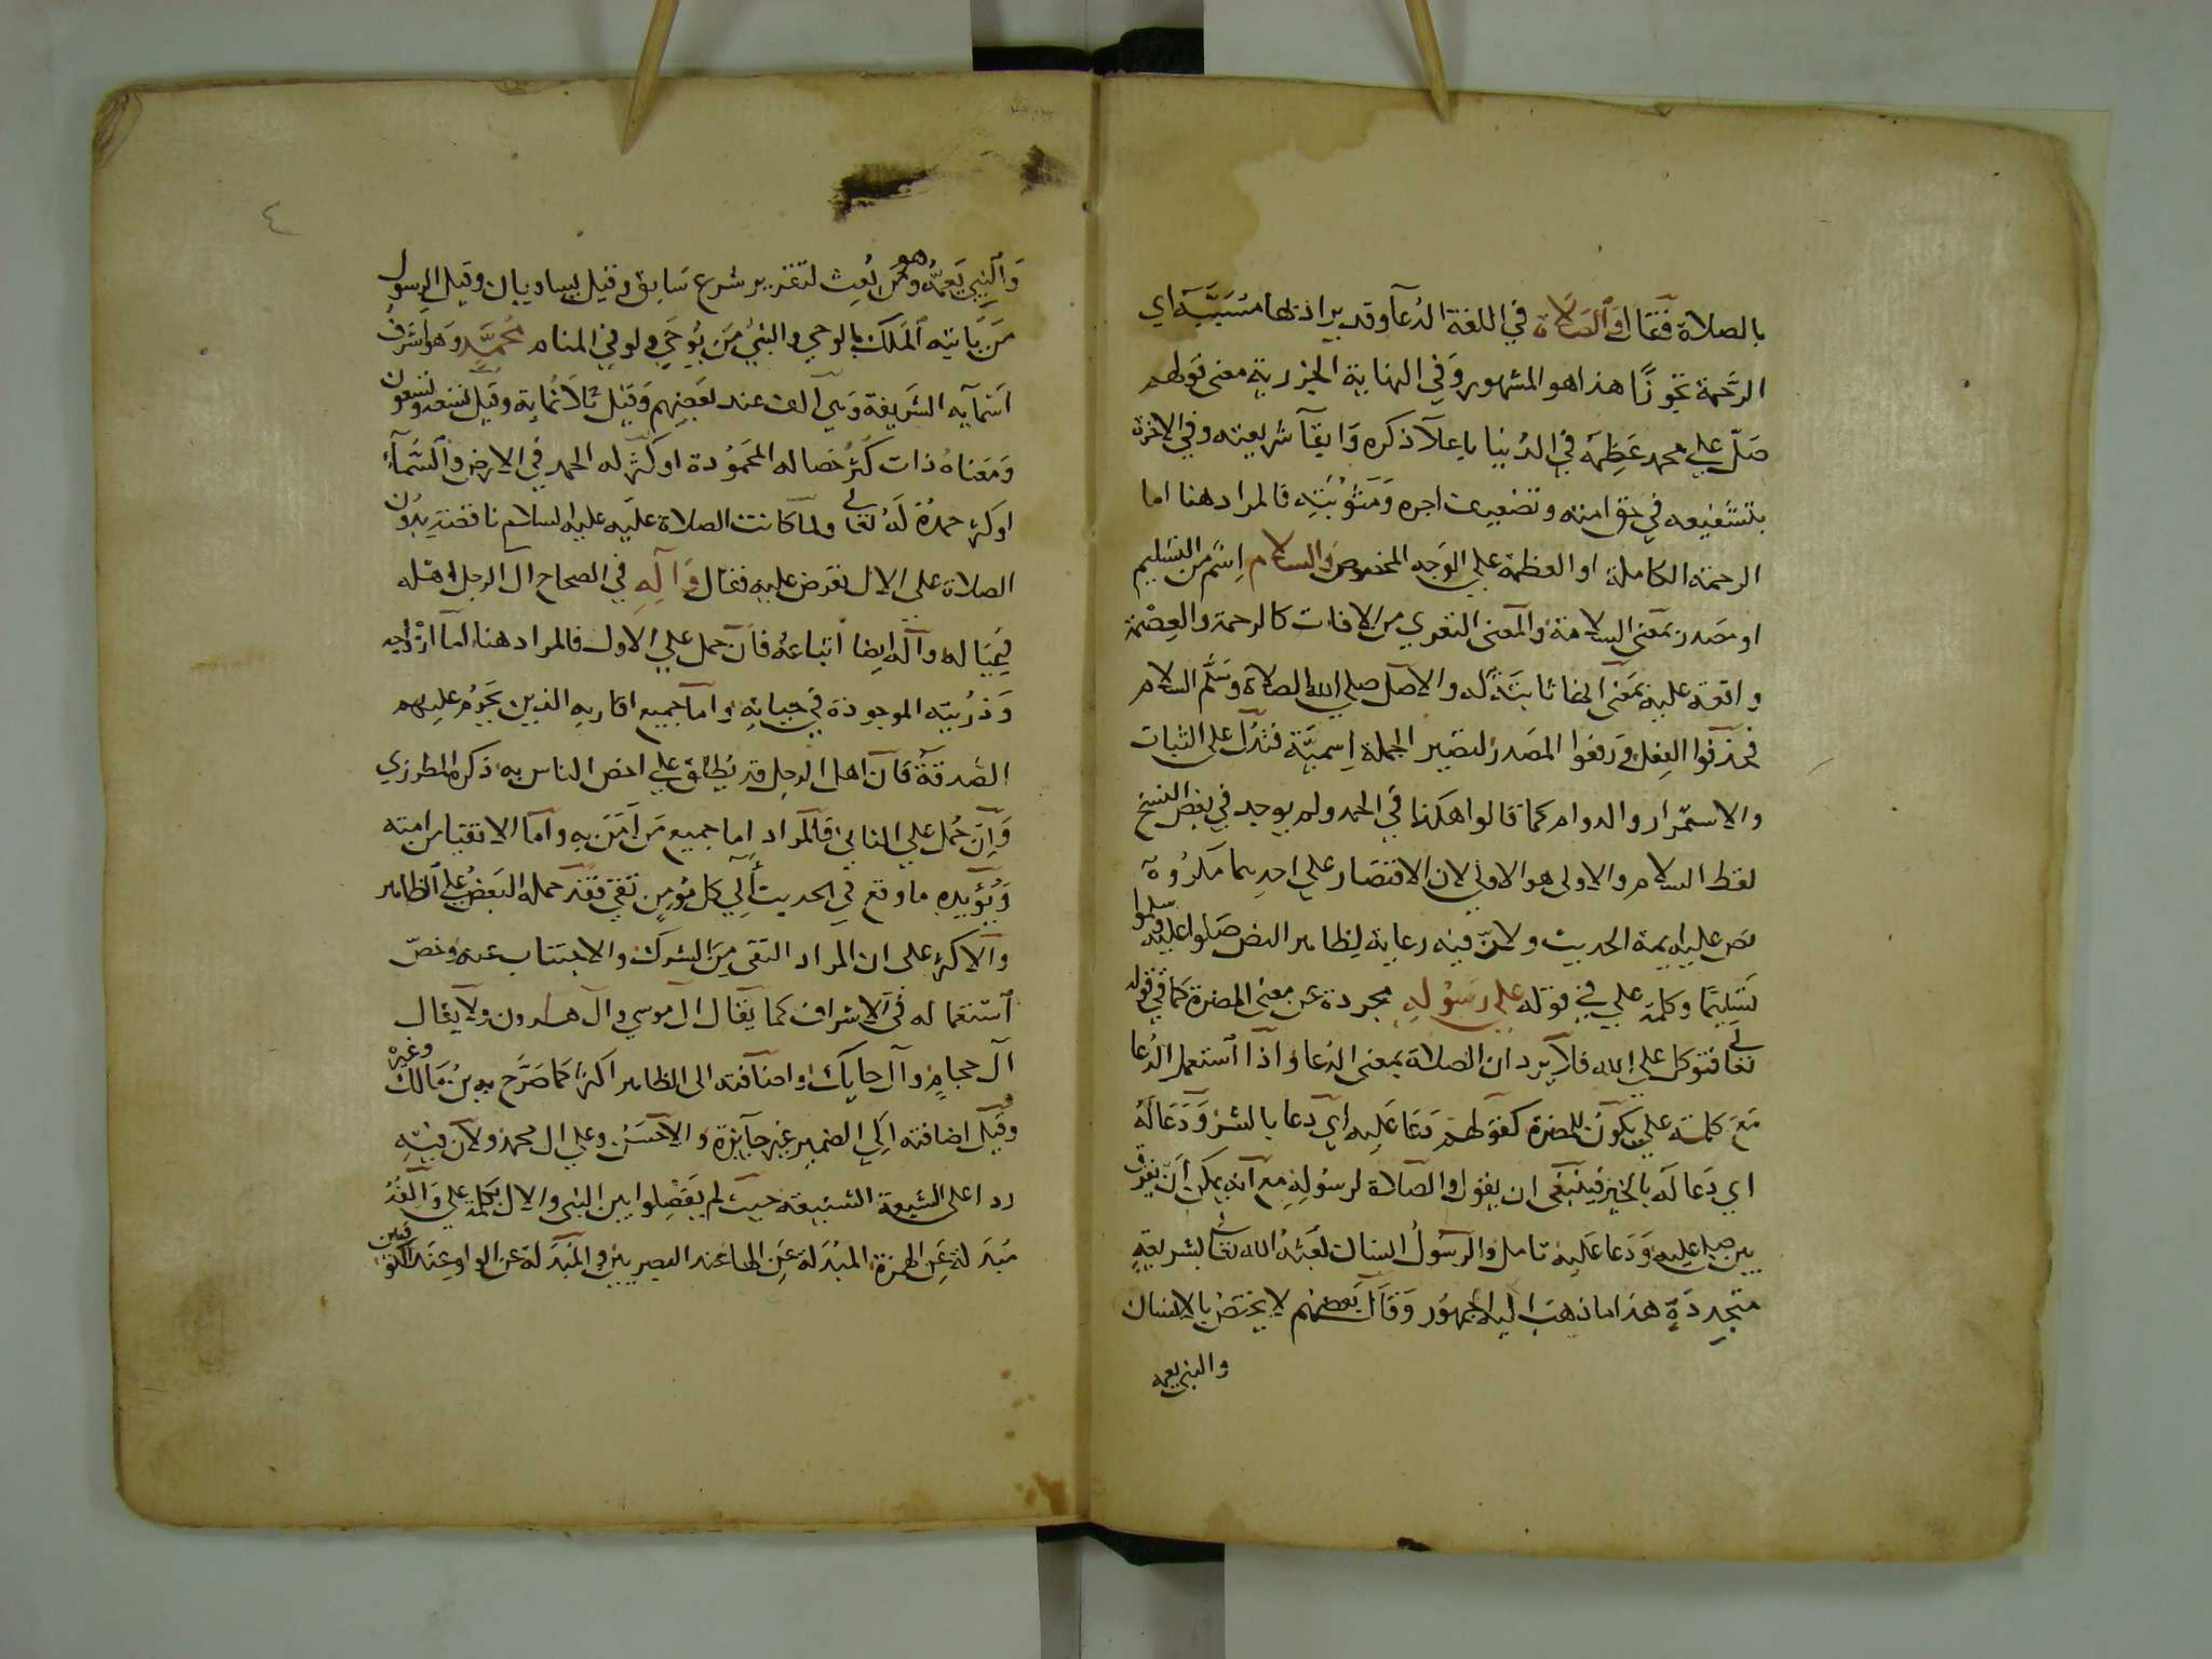 بالصلاة فقال والصلاة في اللغة الدعآ وقد يراد بها مسببه اي
الرحمة تجوزًا هذا هو المشهور وفي النهاية الجزرية معنى قولهم
صلّ علي محمد عظمه في الدنيا باعلآ ذكره وابقآ شريعته وفي الاخرة
بتشفيعه في حق امته وتضعيف اجره ومثوبته فالمراد هنا اما
الرحمة الكاملة او العظمة علي الوجه المخصوص والسلام اسم من التسليم
او مصدر بمعنى السلامة والمعنى التعري من الافات كالرحمة والعصمة
واقعة عليه بمعنى انها ثابتة له والاصل صلي الله الصلاة وسلم السلام
فحذفوا الفعل ورفعوا المصدر لتصير الجملة اسمية فتدل على الثبات
والاستمرار والدوام كما قالوا هكذا في الحمد ولم يوجد في بعض النسخ
لفظ السلام والاولى هو الاولي لان الاقتصار علي احديهما مكروه
نص عليه ايمة الحديث ولانّ فيه رعاية لظاهر النص صلوا عليه وسلموا
تسليمًا وكلمة علي في قوله علي رسوله مجردة عن معنى المضرة كما في قوله
تعالي فتوكل علي الله فلا يرد ان الصلاة بمعنى الدعا واذا استعمل الدعا
مع كلمة علي يكون للمضرة كقولهم دعا عليه اي دعا بالشر ودعا له
اي دعا له بالخير فينبغي ان يقول والصلاة لرسوله مع انه يمكن ان يفرق
بين صلي عليه ودعا عليه تامل والرسول انسان بعثه الله تعالي بشريعة
متجددة هذا ما ذهب اليه الجمهور وقال بعضهم لا يختص بالانسان
والنبي يعمه
والنبي يعمه وهو من بعث لتقرير شرع سابق وقيل يساويان وقيل الرسول
من ياتيه الملك بالوحي والنبي من يوحي ولو في المنام محمد وهو اشرف
اسمآيه الشريفة وهي الف عند بعضهم وقيل ثلاثماية وقيل تسعة وتسعون
ومعناه ذات كثر خصاله المحمودة او كثر له الحمد في الارض والسمآء
او كثر حمده له تعالي ولما كانت الصلاة عليه عليه السلام ناقصة بدون
الصلاة على الال تعرض عليه فقال وآله في الصحاح آل الرجل اهله
وعياله وآله ايضا اتباعه فان حمل علي الاول فالمراد هنا اما ازواجه
وذريته الموجودة في حياته واما جميع اقاربه الذين يحرم عليهم
الصدقة فان اهل الرجل قد يطلق علي اخص الناس به ذكره المطرزي
وان حمل علي الثاني فالمراد اما جميع من امن به واما الاتقيا من امته
ويؤيده ما وقع في الحديث آلي كل مؤمن تقي فقد حمله البعض علي الظاهر
والاكثر على ان المراد التقي من الشرك والاجتناب عنه وخصّ
استعماله في الاشراف كما يقال آل موسي وآل هارون ولا يقال
آل حجام وآل حايك واضافته الى الظاهر اكثر كما صرح به بن مالك وغيره
وقيل اضافته الي الضمير غير جايزة والاحسن وعلي ال محمد ولان فيه
ردا على الشيعة الشنيعة حيث لم يفصلوا بين النبي والال بكلمة علي والفه
مبدلة عن الهمزة المبدلة عن الها عند البصريين والمبدلة عن الواو عند الكوفيين
٤